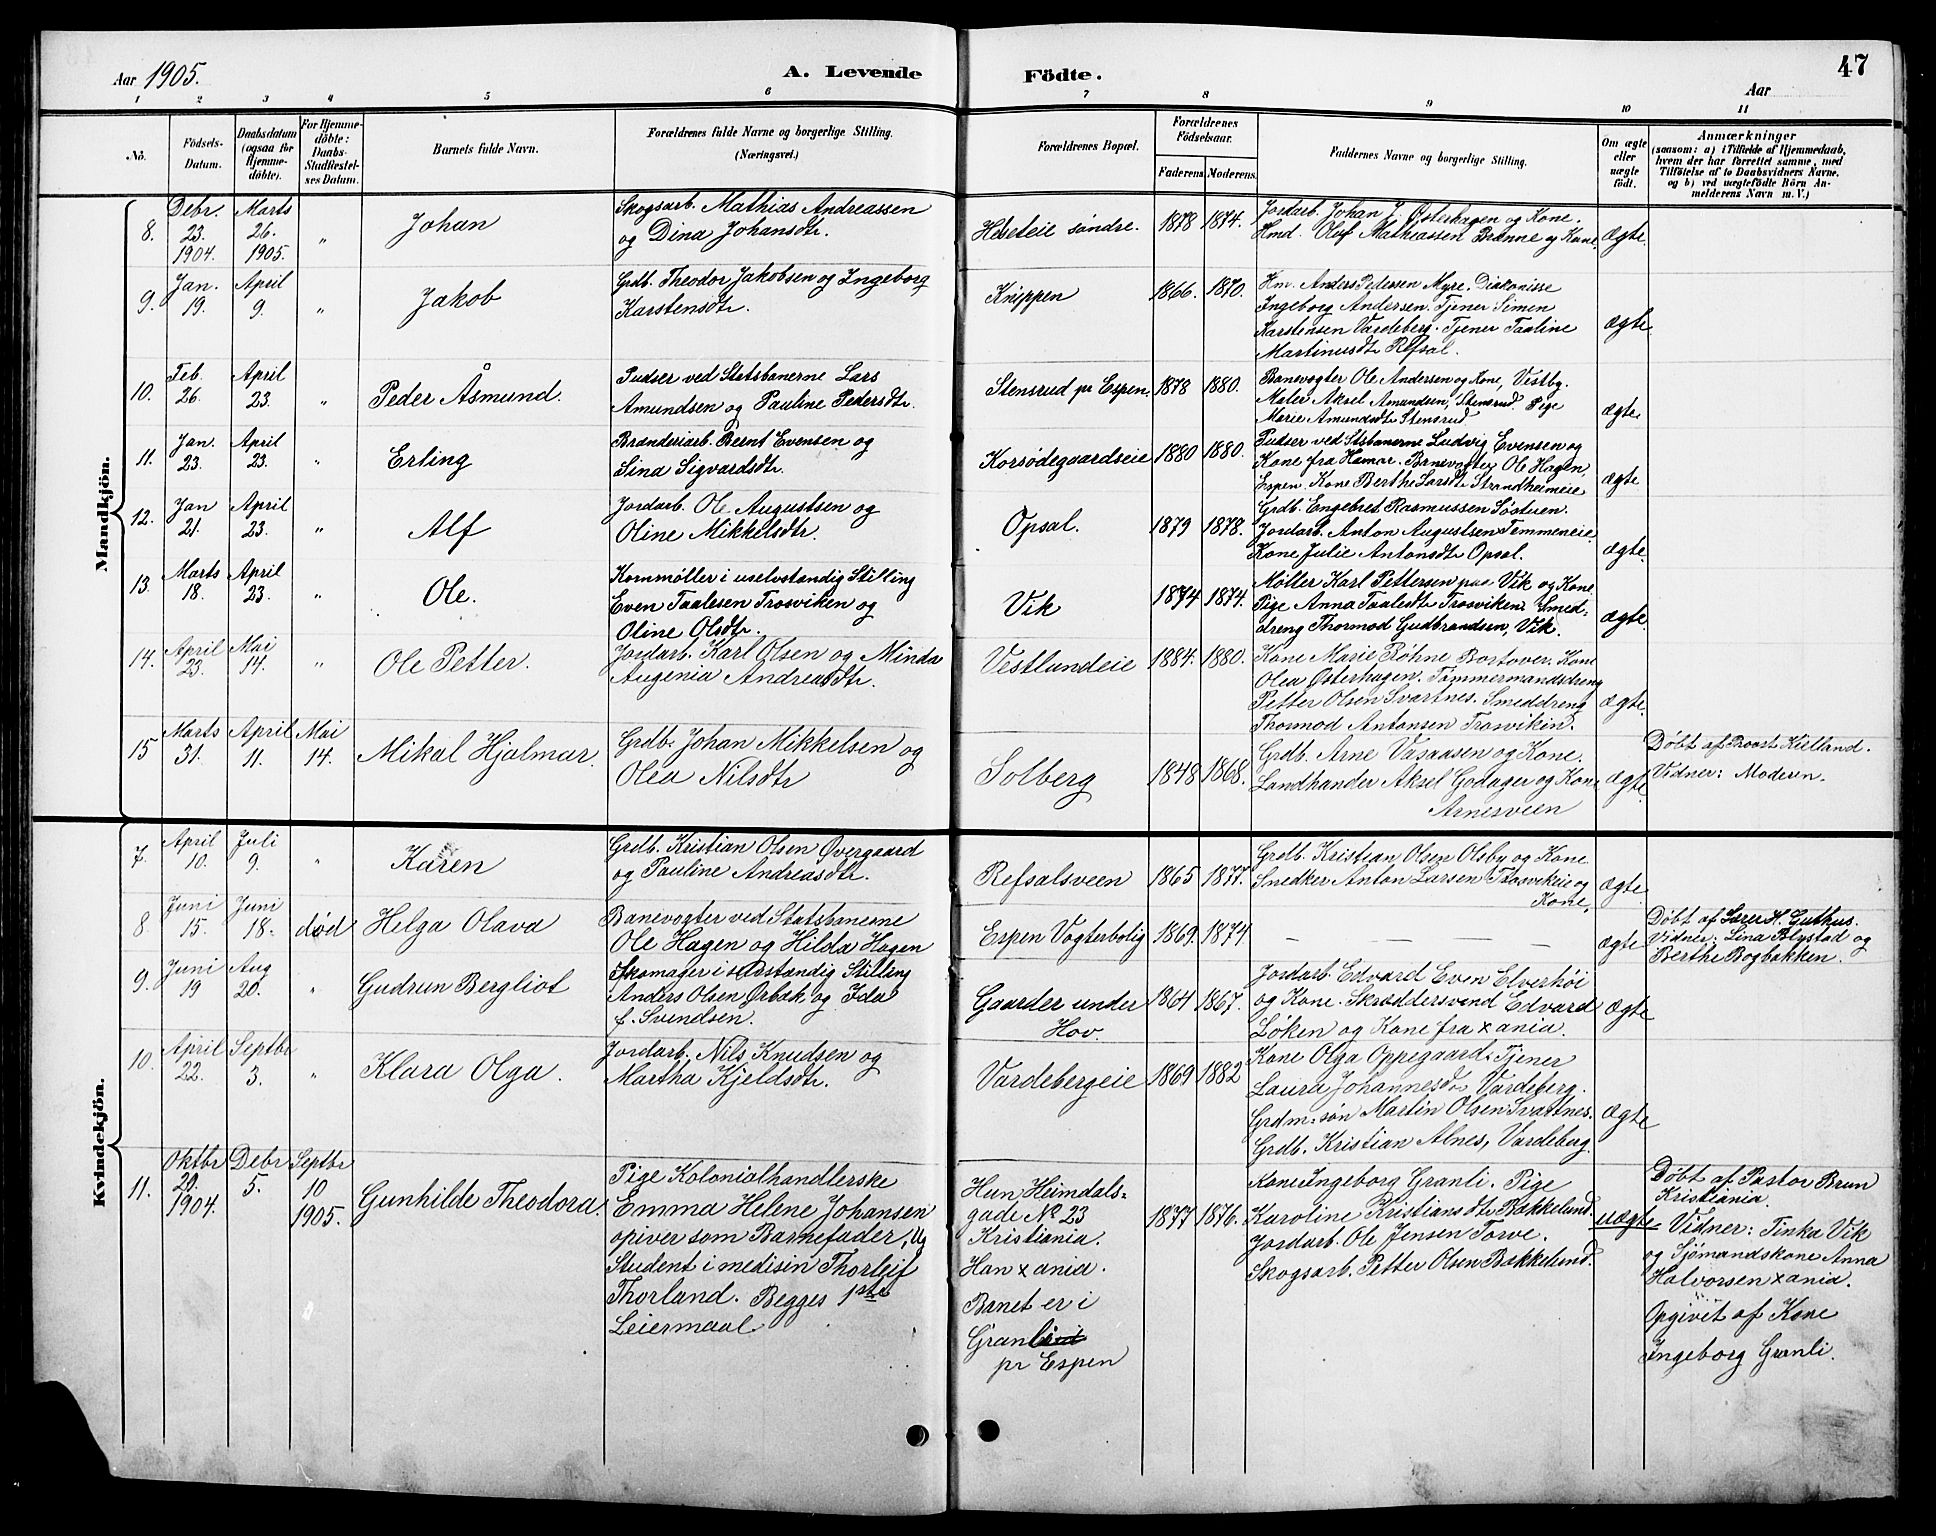 Aar 1905.
A. Levende Födte.
47
Aar
1 2 3 4 5 6 7 8 9 10 11
No.
Födsels-
Datum.
Daabsdatum
(ogsaa for
Hjemme-
döbte).
For Hjemme-
döbte:
Daabs-
Stadfæstel-
ses Datum.
Barnets fulde Navn.
Forældrenes fulde Navne og borgerlige Stilling.
(Næringsvei.)
Forældrenes Bopæl.
Forældrenes
Födselsaar.
Faderens
Moderens.
Faddernes Navne og borgerlige Stilling.
Om ægte
eller
uægte
födt.
Anmærkninger
(saasom: a) i Tilfælde af Hjemmedaab,
hvem der har forrettet samme, med
Tilföielse af to Daabsvidners Navne,
og b) ved uægtefödte Börn An-
melderens Navn m. V.)
Mandkjön.
8.
Debr.
23.
1904.
Marts
26.
1905.
"
Johan
Skogsarb. Mathias Andreassen
og Dina Johansdtr.
Heseteie søndre.
1878
1874.
Jordarb. Johan J. Østerhagen og Kone.
Hmd. Oluf Mathiassen Brenne og Kone.
Ægte
9.
Jan.
19.
April
9.
"
Jakob
Grdb. Theodor Jakobsen og Ingeborg
Karstensdtr.
Knippen
1866.
1870.
Hm. Anders Pedersen Myre. Diakonisse
Ingeborg Andersen. Tjener Simen
Karstensen Vardeberg. Tjener Taaline
Martinusdtr Refsal.
Ægte
10.
Feb.
26.
April
23.
"
Peder Åsmund.
Pudser ved Statsbanerne Lars
Amundsen og Pauline Pedersdtr.
Stensrud pr Espen.
1878
1880.
Banevogter Ole Andersen og Kone, Vestby.
Maler Aksel Amundsen, Stensrud. Pige
Marie Amundsdtr Stensrud
Ægte
11.
Jan.
23.
April
23.
"
Erling
Brænderiarb. Bernt Evensen og
Lina Sigvardsdtr.
Korsødegaardseie
1880
1880.
Pudser ved Stsbanerne Ludvig Evensen og
Kone fra Hamar. Banevogter Ole Hagen,
Espen. Kone Berthe Larsdtr Strandheimeie
Ægte
12.
Jan
21.
April
23.
"
Alf
Jordarb. Ole Augustsen og
Oline Mikkelsdtr.
Opsal.
1879
1878.
Grdb. Engebret Rasmussen Søstuen.
Jordarb. Anton Augustsen Temmeneie.
Kone Julie Antonsdtr Opsal.
Ægte.
13.
Marts
18.
April
23.
"
Ole.
Kornmøller i uselvstændig Stilling
Even Taalesen Trosviken og
Oline Olsdtr.
Vik
1874
1874.
Møller Karl Pettersen paa Vik og Kone
Pige Anna Taalesdtr Trosviken. Smed-
dreng Thormod Gudbrandsen, Vik.
Ægte.
14.
April
23.
Mai
14.
"
Ole Petter.
Jordarb. Karl Olsen og Minda
Augenia Andreasdtr.
Vestlundeie
1884.
1880.
Kone Marie Røhne Bortover. Kone
Olea Østerhagen. Tømmermandsdreng
Petter Olsen Svartnes. Smeddreng
Thormod Antonsen Trosvikin.
Ægte.
15
Marts
31.
April
11.
Mai
14.
Mikal Hjalmar.
Grdb. Johan Mikkelsen og
Olea Nilsdtr
Solberg
1848
1868.
Grdb. Arne Vasaasen og Kone.
Landhander Aksel Godager og Kone
Arnesveen
Ægte.
Døbt af Provst Kielland.
Vidner: Moderen.
Kvindekjön.
7.
April
10.
Juli
9.
"
Karen
Grdb. Kristian Olsen Øvergaard
og Pauline Andreasdtr.
Refsalsveen
1865
1877.
Grdb. Kristian Olsen Olsby og Kone
Snedker Anton Larsen Trosvikeie og
Kone,
Ægte.
8
Juni
15.
Juni
18.
død
Helga Olava
Banevogter ved Statsbanerne
Ole Hagen og Hilda Hagen
Espen Vogterbolig
1869.
1874
— — — —
Ægte
Døbt af Lærer H. Guthus.
Vidner: Lina Blystad og
Berthe Bogbakken.
9.
Juni
19
Aug
20.
"
Gudrun Bergliot
Skomager i selvstændig Stilling
Anders Olsen Ørbæk og Ida
f. Svendsen.
Gaarder under
Hov.
1864
1867.
Jordarb. Edvard Even Elverhöi
og Kone. Skræddersvend Edvard
Løken og Kone fra xania.
Ægte
10.
April
22.
Septbr
3.
"
Klara Olga.
Jordarb. Nils Knudsen og
Martha Kjeldsdtr.
Vardebergeie
1869
1882
Kone Olga Oppegaard. Tjener
Laura Johannesdr Vardeberg.
Grdm.søn Martin Olsen Svartnes.
Grdb. Kristian Alnes, Vardeberg.
Ægte
11.
Oktbr
20.
1904.
Debr
5.
Septbr
10
1905.
Gunhilde Theodora.
Pige Kolonialhandlerske
Emma Helene Johansen
opiver som Barnefader, Ug
Student i medisin Thorleif
Thorland. Begges 1ste
Leiermaal.
Hun Heimdals=
gade No 23
Kristiania.
Han xania.
Banet er i
Granli
pr Espen
1877
1876.
Kone Ingeborg Granli. Pige
Karoline Kristiansdtr Bækkelund.
Jordarb. Ole Jensen Torve.
Skogsarb. Petter Olsen Bækkelund.
uægte
Døbt af Pastor Brun
Kristiania.
Vidner: Tinka Vik
og Sjömandskone Anna
Halvorsen xania.
Opgivet af Kone
Ingeborg Granli.